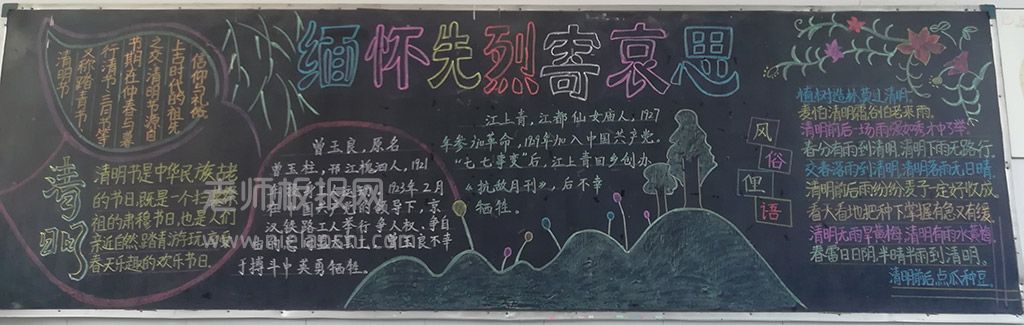 缅怀先烈寄哀思
信仰与礼俗
上古时代的祖先
之交。清明节源自
节期在仲春与暮
行清节、三月节等
又称踏青节、
清明节
清明
清明节是中华民族古老
的节日,既是一个扫墓祭
祖的肃穆节日,也是人们
亲近自然、踏青游玩、享受
春天乐趣的欢乐节日。
曾玉良,原名
曾玉柱,邗江槐泗人,1921
1923年2月
在中国共产党的领导下,京
汉铁路工人举行争人权、争自
曾国良不幸
于搏斗中英勇牺牲。
江上青,江都仙女庙人,1927
年参加革命,1929年加入中国共产党。
“七七事变”后,江上青回乡创办
《抗敌月刊》,后不幸
牺牲。
风
俗
俚
语
植树造林莫过清明
麦怕清明霜,谷怕老来雨。
清明前后一场雨,强如秀才中了举。
春分有雨到清明,清明下雨无路行
清明前后雨纷纷,麦子一定好收成
清明无雨旱黄梅,清明有雨水黄梅。
春雷日日阴,半晴半雨到清明。
清明前后,点瓜种豆。
老师板报网